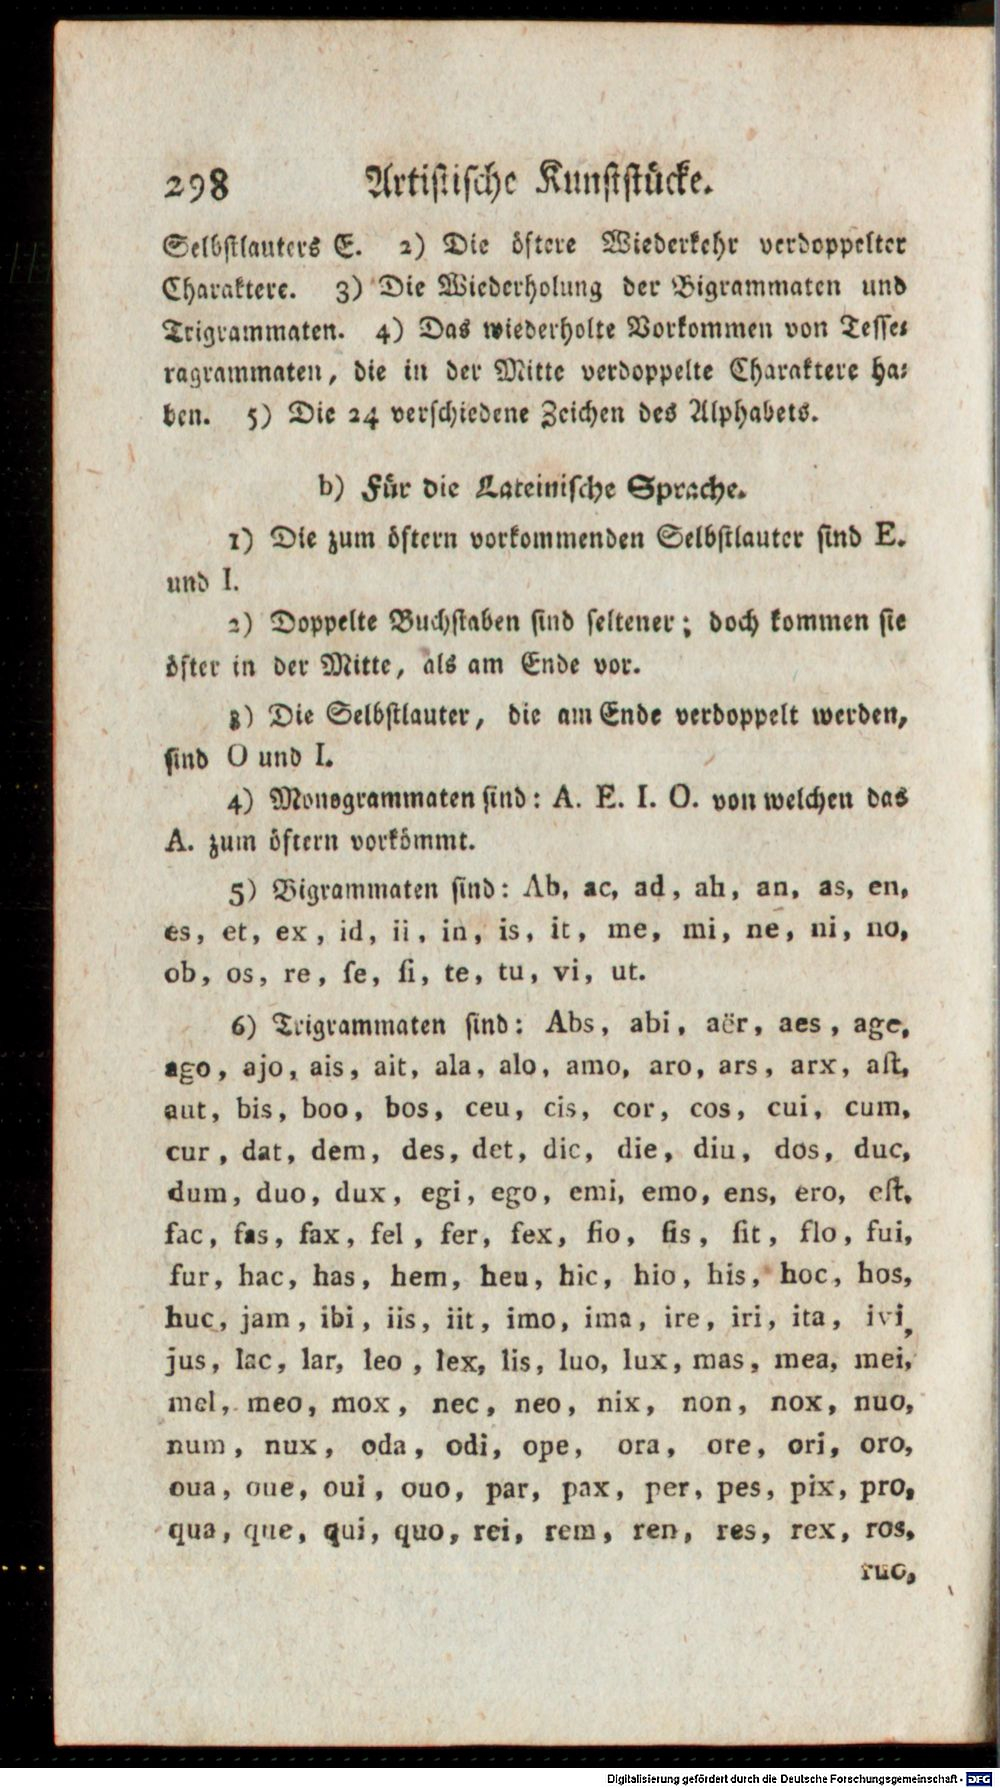 298 Artistische Kunststücke.
Selbstlauters E. 2) Die öftere Wiederkehr verdoppelter
Charaktere. 3) Die Wiederholung der Bigrammaten und
Trigrammaten. 4) Das wiederholte Vorkommen von Tesse⸗
ragrammaten, die in der Mitte verdoppelte Charaktere ha⸗
ben. 5) Die 24 verschiedene Zeichen des Alphabets.
b) Für die Lateinische Sprache.
1) Die zum öftern vorkommenden Selbstlauter sind E.
und I.
2) Doppelte Buchstaben sind seltener; doch kommen sie
öfter in der Mitte, als am Ende vor.
3) Die Selbstlauter, die am Ende verdoppelt werden,
sind O und I.
4) Monogrammaten sind: A. E. I. O. von welchen das
A. zum öftern vorkömmt.
5) Bigrammaten sind: Ab, ac, ad, ah, an, as, en,
es, et, ex, id, ii, in, is, it, me, mi, ne, ni, no,
ob, os, re, ſe, ſi, te, tu, vi, ut.
6) Trigrammaten sind: Abs, abi, aër, aes, age,
ago, ajo, ais, ait, ala, alo, amo, aro, ars, arx, aſt,
aut, bis, boo, bos, ceu, cis, cor, cos, cui, cum,
cur, dat, dem, des, det, dic, die, diu, dos, duc,
dum, duo, dux, egi, ego, emi, emo, ens, ero, eſt,
fac, fas, fax, fel, fer, fex, fio, fis, ſit, flo, fui,
fur, hac, has, hem, heu, hic, hio, his, hoc, hos,
huc, jam, ibi, iis, iit, imo, ima, ire, iri, ita, ivi,
jus, lac, lar, leo, lex, lis, luo, lux, mas, mea, mei,
mel, meo, mox, nec, neo, nix, non, nox, nuo,
num, nux, oda, odi, ope, ora, ore, ori, oro,
oua, oue, oui, ouo, par, pax, per, pes, pix, pro,
qua, que, qui, quo, rei, rem, ren, res, rex, ros,
ruo,
Digitalisierung gefördert durch die Deutsche Forschungsgemeinschaft - DFG